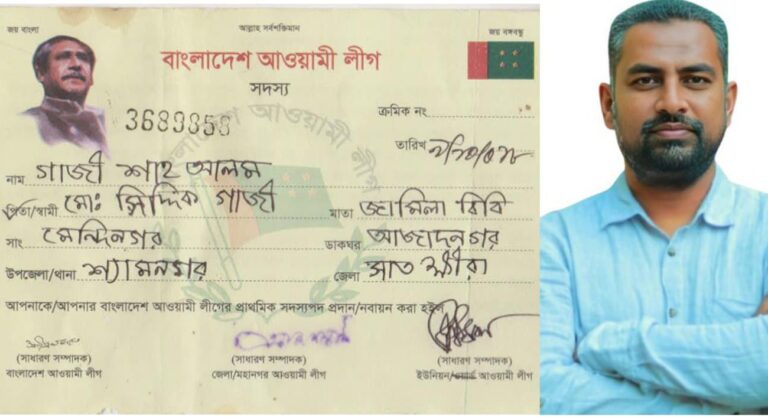 জয় বাংলা
আল্লাহ সর্বশক্তিমান
জয় বঙ্গবন্ধু
বাংলাদেশ আওয়ামী লীগ
সদস্য
3689858 ক্রমিক নং
তারিখ
নাম গাজী শাহ আলম
পিতা/স্বামী মোঃ ছিদ্দিক গাজী মাতা জামিলা বিবি
সাং মেন্দিনগর ডাকঘর আজাদনগর
উপজেলা/থানা শ্যামনগর জেলা সাতক্ষীরা
আপনাকে/আপনার বাংলাদেশ আওয়ামী লীগের প্রাথমিক সদস্যপদ প্রদান/নবায়ন করা হইল
(সাধারণ সম্পাদক) (সাধারণ সম্পাদক) (সাধারণ সম্পাদক)
বাংলাদেশ আওয়ামী লীগ জেলা/মহানগর আওয়ামী লীগ ইউনিয়ন/ওয়ার্ড আওয়ামী লীগ